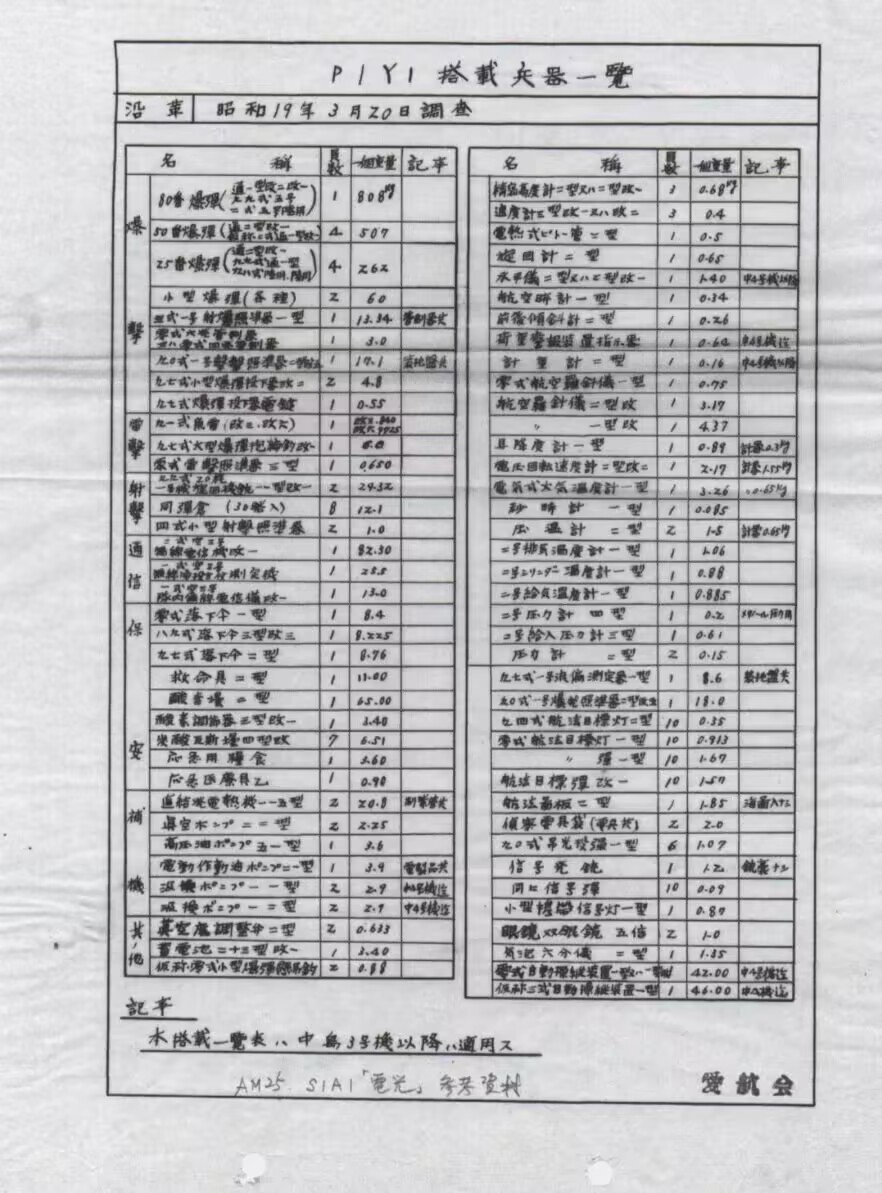 P1Y1 搭載兵器一覽
沿革 昭和19年3月20日調査
名称 員数 一個重量 記事
爆擊
80番爆彈 1 808kg
50番爆彈 4 507
25番爆彈 4 262
小型爆彈(各種) 2 60
三式一号射爆照準器一型 1 13.34 管制器共
1 3.0
九〇式一号爆擊照準器 1 17.1
九七式小型爆彈投下器改二 2 4.8
九七式爆彈投下器電鍵 1 0.55
電擊
九一式魚雷(改三、改六) 1
九七式大型爆彈 1
零式雷擊照準器三型 1 0.650
射擊
一号機銃一型改一 2 24.32
同彈倉(30發入) 8 12.1
四式小型射擊照準器 2 1.0
通信
二式空三号
無線電信機改一 1 82.30
一式空三号
無線帰投方位測定機 1 25.5
一式空三号
隊内無線電話機改一 1 13.0
保安
零式落下傘一型 1 8.4
八九式落下傘三型改三 1 8.225
九七式落下傘二型 1 8.76
救命具二型 1 11.00
酸素壜二型 1 65.00
酸素調節器三型改一 1 3.40
炭酸瓦斯壜四型改 7 6.51
応急用糧食 1 3.60
応急医療具乙 1 0.90
補機
直結発電機一一五型 2 20.8 制御器共
真空ポンプ二二型 2 2.25
高圧油ポンプ五一型 1 3.6
電動作動油ポンプ二一型 1 3.9
一型 2 2.9
二型 2 2.7 中4号機迄
其ノ他
真空度調整弁二型 2 0.633
蓄電池二十三型改一 1 3.40
仮称零式小型爆彈懸吊鈎 2 0.88
名称 員数 一個重量 記事
精密高度計二型又ハ二型改一 3 0.68kg
速度計三型改一又ハ改二 3 0.4
電熱式ピトー管二型 1 0.5
旋回計二型 1 0.65
水平儀二型又ハ二型改一 1 1.40 中4号機以降
航空時計一型 1 0.34
前後傾斜計二型 1 0.26
荷重警報装置指示器 1 0.64 中4号機迄
計重計二型 1 0.16 中4号機以降
零式航空羅針儀一型 1 0.75
航空羅針儀二型改 1 3.17
〃 一型改 1 4.37
昇降度計一型 1 0.89 計器0.3kg
電圧回転速度計二型改二 1 2.17 計器1.55kg
電気式大気温度計一型 1 3.26 〃0.65kg
秒時計一型 1 0.085
圧温計二型 2 1.5 計器0.65kg
二号排気温度計一型 1 1.06
二号シリンダー温度計一型 1 0.88
二号給気温度計一型 1 0.885
二号圧力計四型 1 0.2
二号給入圧力計三型 1 0.61
圧力計二型 2 0.15
九七式一号流偏測定器一型 1 8.6
九〇式一号爆撃照準器二型改三 1 18.0
九四式航法目標灯二型 10 0.35
零式航法目標灯一型 10 0.913
〃 彈一型 10 1.67
航法目標彈改一 10 1.57
航法圖板二型 1 1.85
偵察要具袋 2 2.0
九〇式吊光投彈一型 6 1.07
信号発銃 1 1.2 銃嚢ナシ
同上信号彈 10 0.09
小型携帶信号灯一型 1 0.87
眼鏡双眼鏡五倍 2 1.0
気泡六分儀二型 1 1.35
零式自動操縦装置 1 42.00 中4号機迄
仮称三式自動操縦装置一型 1 46.00
記事
本搭載一覽表ハ中島3号機以降ハ適用ス
AM25. S1A1「電光」参考資料
愛航会